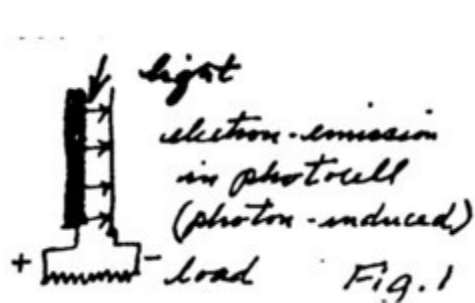 light
electron-emission
in photocell
(photon-induced)
+ - load
Fig. 1